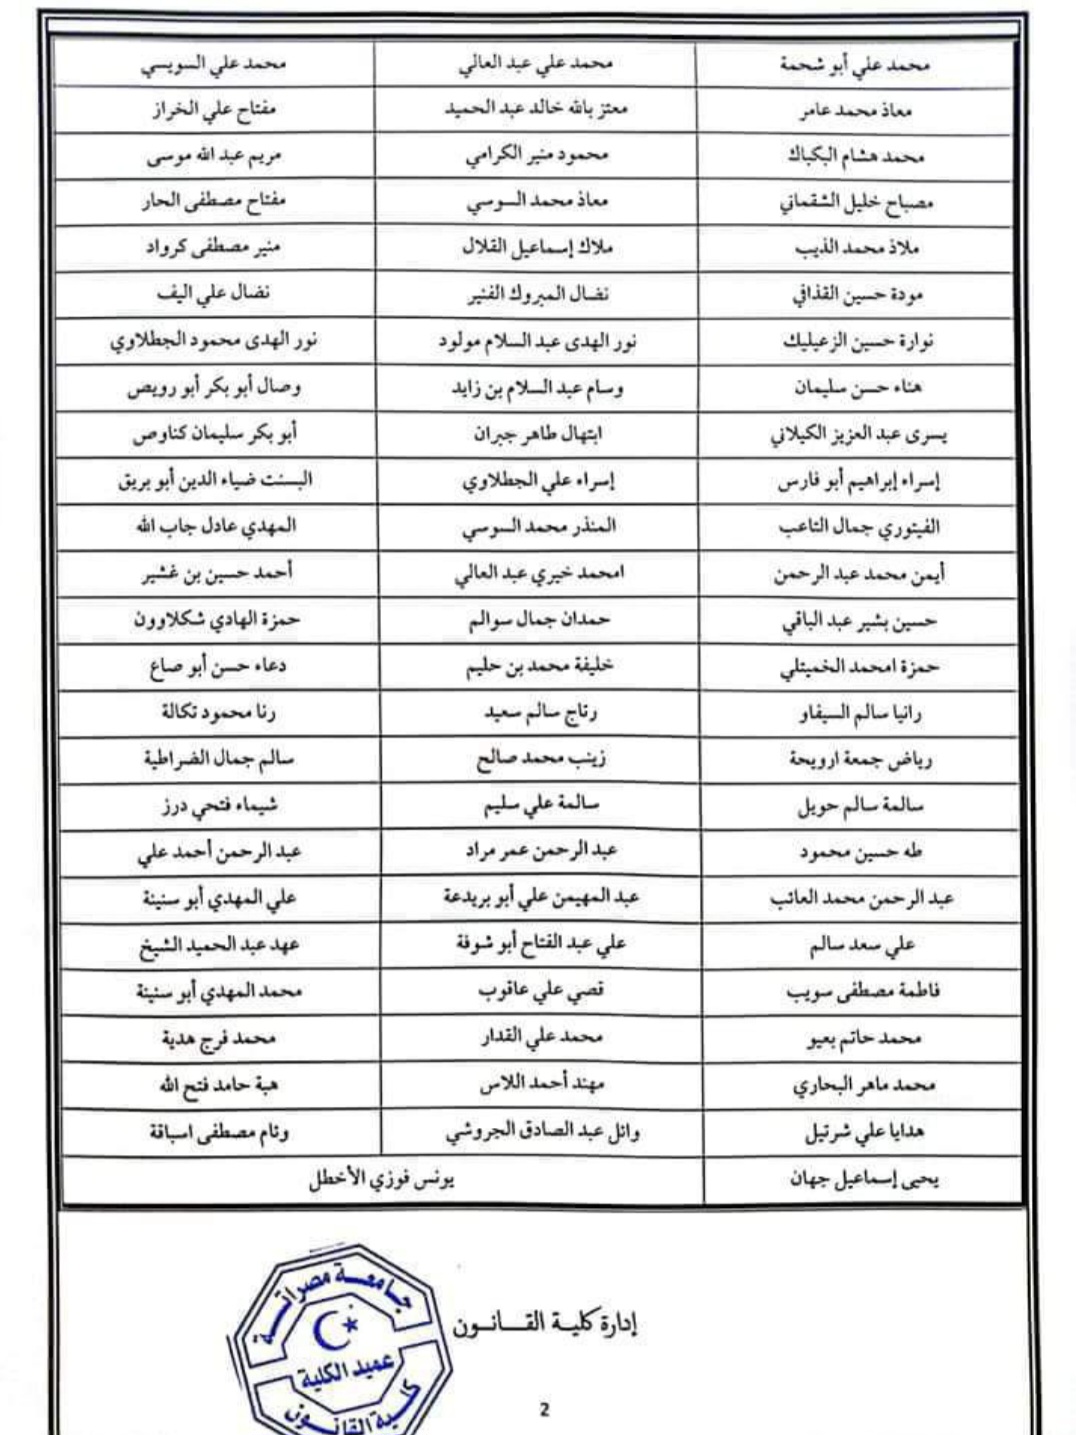 محمد علي أبو شحمة	محمد علي عبد العالي	محمد علي السويسي
معاذ محمد عامر	معتز بالله خالد عبد الحميد	مفتاح علي الخراز
محمد هشام البكباك	محمود منير الكرامي	مريم عبد الله موسى
مصباح خليل الشقماني	معاذ محمد السوسي	مفتاح مصطفى الحار
ملاذ محمد الذيب	ملاك إسماعيل القلال	منير مصطفى كرواد
مودة حسين القذافي	نضال المبروك الفنير	نضال علي اليف
نوارة حسين الزعيليك	نور الهدى عبد السلام مولود	نور الهدى محمود الجطلاوي
هناء حسن سليمان	وسام عبد السلام بن زايد	وصال أبو بكر أبو رويص
يسرى عبد العزيز الكيلاني	ابتهال طاهر جبران	أبو بكر سليمان كناوص
إسراء إبراهيم أبو فارس	إسراء علي الجطلاوي	البسنت ضياء الدين أبو بريق
الفيتوري جمال التاعب	المنذر محمد السوسي	المهدي عادل جاب الله
أيمن محمد عبد الرحمن	امحمد خيري عبد العالي	أحمد حسين بن غشير
حسين بشير عبد الباقي	حمدان جمال سوالم	حمزة الهادي شكلاوون
حمزة امحمد الخميتلي	خليفة محمد بن حليم	دعاء حسن أبو صاع
رانيا سالم السيفاو	رتاج سالم سعيد	رنا محمود تكالة
رياض جمعة ارويحة	زينب محمد صالح	سالم جمال الضراطية
سالمة سالم حويل	سالمة علي سليم	شيماء فتحي درز
طه حسين محمود	عبد الرحمن عمر مراد	عبد الرحمن أحمد علي
عبد الرحمن محمد العائب	عبد المهيمن علي أبو بريدعة	علي المهدي أبو سنينة
علي سعد سالم	علي عبد الفتاح أبو شوفة	عهد عبد الحميد الشيخ
فاطمة مصطفى سويب	قصي علي عاقوب	محمد المهدي أبو سنينة
محمد حاتم بعيو	محمد علي القدار	محمد فرج هدية
محمد ماهر البحاري	مهند أحمد اللاس	هبة حامد فتح الله
هدايا علي شرتيل	وائل عبد الصادق الجروشي	وئام مصطفى اسباقة
يحيى إسماعيل جهان	يونس فوزي الأخطل
إدارة كلية القـــانـــون
جامعة مصراتة
عميد الكلية
كلية القانون
2